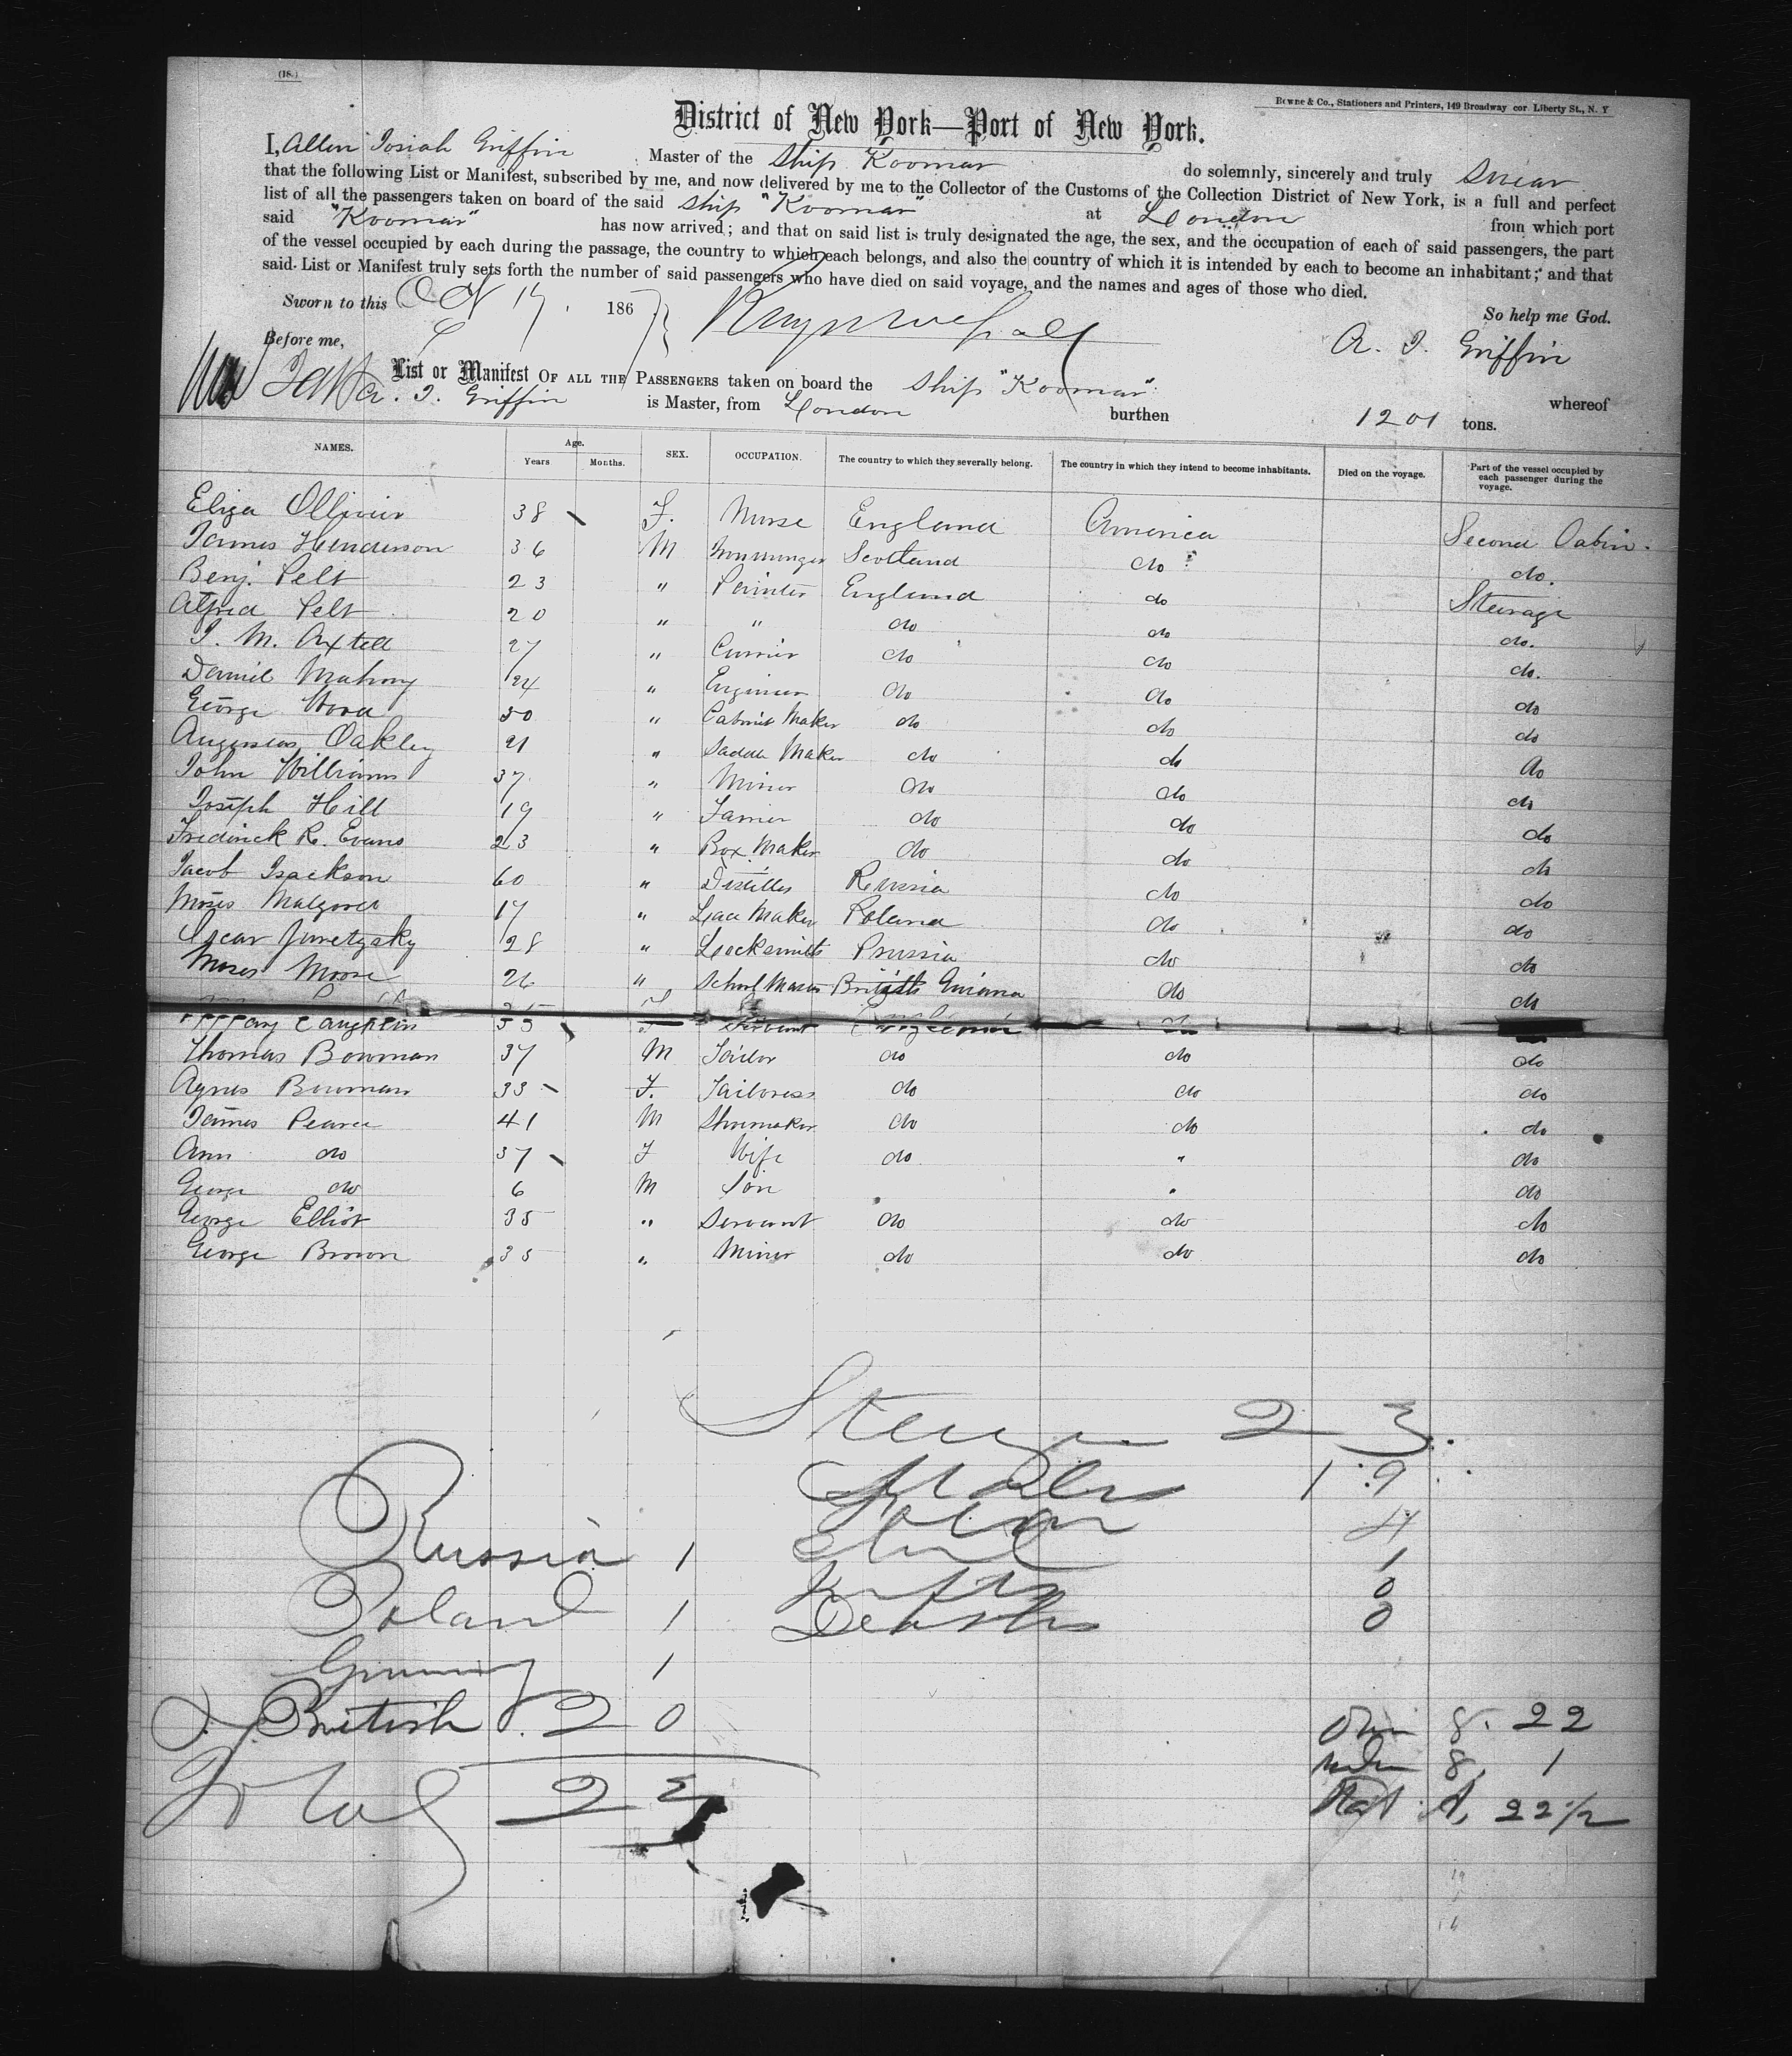 (18.)
Bowne & Co., Stationers and Printers, 149 Broadway cor. Liberty St., N. Y
District of New York—Port of New York.
I, Allen Josiah Griffin Master of the Ship Koomar do solemnly, sincerely and truly swear
that the following List or Manifest, subscribed by me, and now delivered by me to the Collector of the Customs of the Collection District of New York, is a full and perfect
list of all the passengers taken on board of the said ship "Koomar" at London from which port
said "Koomar" has now arrived; and that on said list is truly designated the age, the sex, and the occupation of each of said passengers, the part
of the vessel occupied by each during the passage, the country to which each belongs, and also the country of which it is intended by each to become an inhabitant; and that
said List or Manifest truly sets forth the number of said passengers who have died on said voyage, and the names and ages of those who died.
Sworn to this Oct 17. 1867 So help me God.
Before me, A. J. Griffin
List or Manifest OF ALL THE PASSENGERS taken on board the Ship "Koomar" whereof
A. J. Griffin is Master, from London burthen 1201 tons.
NAMES. Age. Years Months. SEX. OCCUPATION. The country to which they severally belong. The country in which they intend to become inhabitants. Died on the voyage. Part of the vessel occupied by each passenger during the voyage.
Eliza Ollivier 38 F. Nurse England America Second Cabin.
James Henderson 36 M Scotland do do.
Benj. Pelt 23 " Painter England do Steerage
Alfred Pelt 20 " " do do do.
J. M. Axtell 27 " Currier do do do.
Daniel Mahony 24 " Engineer do do do
George Wood 30 " Cabinet Maker do do do
Augustus Oakley 21 " Saddle Maker do do do
John Williams 37 " Miner do do do
Joseph Hill 19 " do do do
Frederick R. Evans 23 " Box Maker do do do
Jacob Isackson 60 " Distiller Russia do do
Moses 17 " Lace Maker Poland do do
Oscar Juretzsky 28 " Locksmith Prussia do do
Moses Moore 26 " School Master British Guiana do do
Laughlin 35 F Servant England do
Thomas Bowman 37 M Tailor do do do
Agnes Bowman 33 F. Tailoress do do do
James Pearce 41 M Shoemaker do do do
Ann do 37 F Wife do " do
George do 6 M Son " " do
George Elliot 35 " Servant do do do
George Brown 35 " Miner do do do
Steerage 23.
Males 19
4
Russia 1 1
0
Poland 1 Deaths 0
Germany 1
British 20
22
1
Total 23
22 1/2